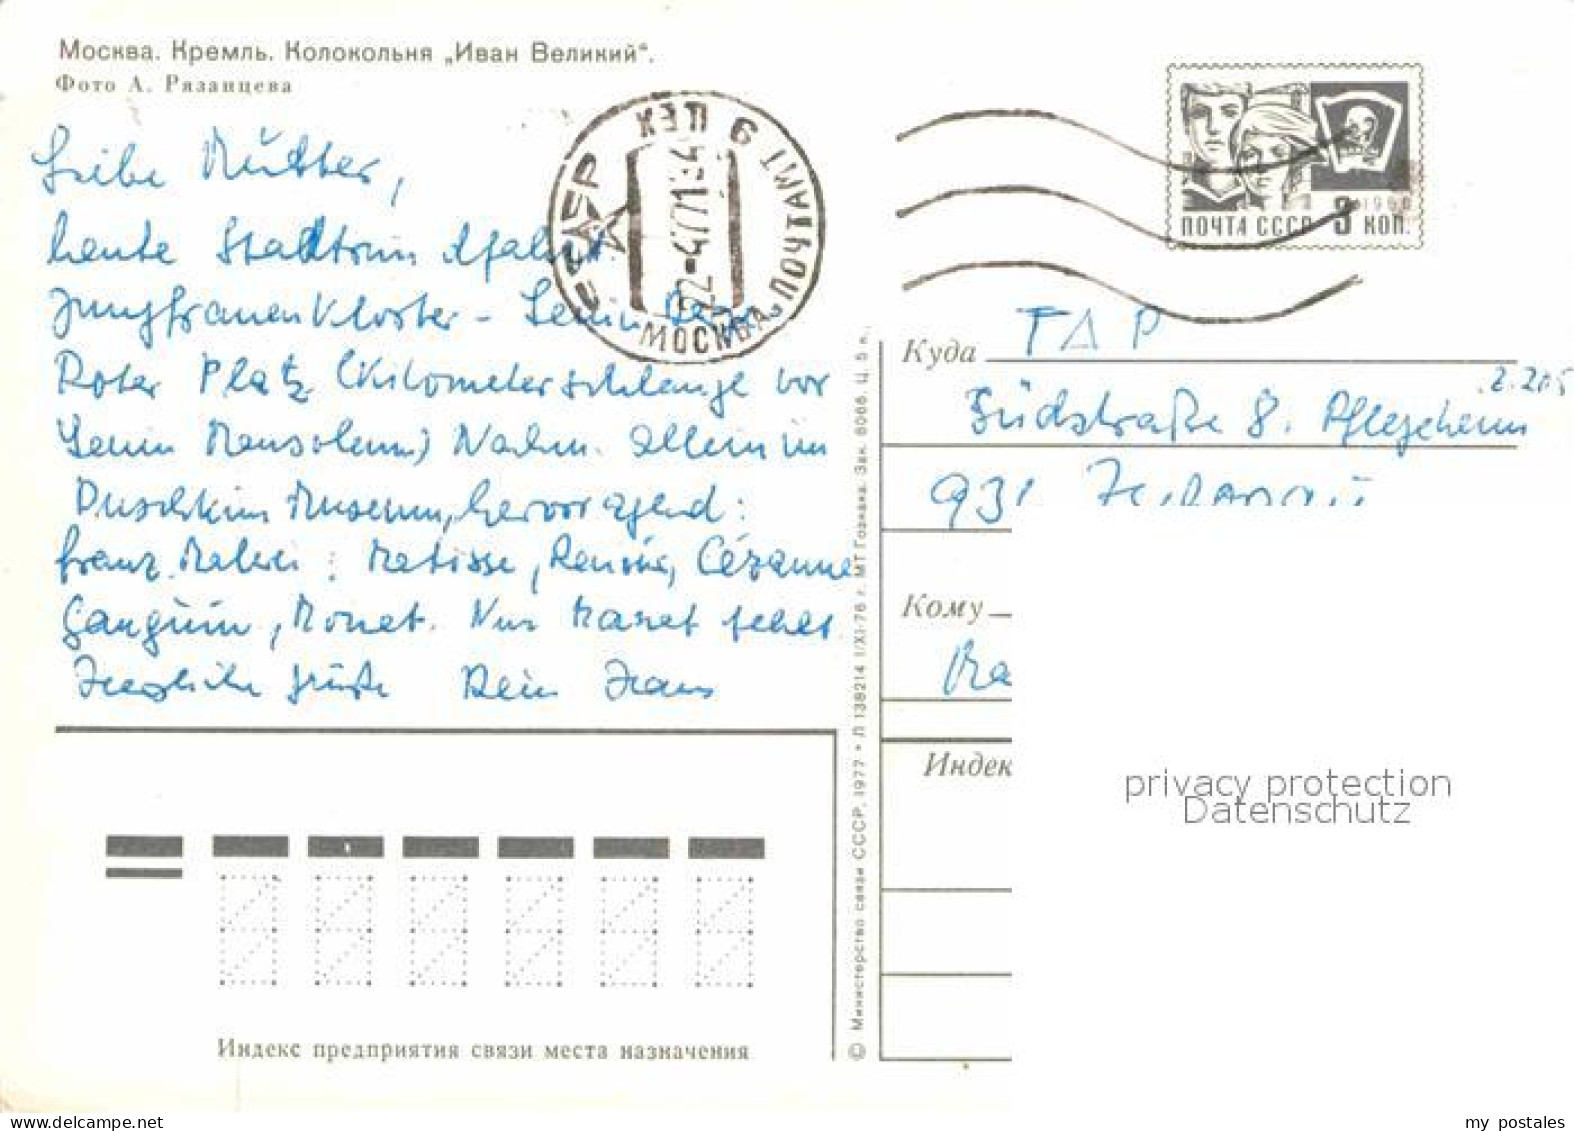 Москва. Кремль. Колокольня „Иван Великий“.
Фото А. Рязанцева
Liebe Mutter,
heute Stadtrundfahrt
Jungfrauenkloster - Lenin
Roter Platz (Kilometerschlange vor
Lenin Mausoleum) Nachm. allein im
Puschkin Museum, hervorragend:
franz. Malerei: Matisse, Renoir, Cézanne
Gauguin, Monet. Nur Manet fehlt
Herzliche Grüße Dein Hans
СССР
МОСКВА ПОЧТАМТ
6 ЦЕХ
22-4771
ПОЧТА СССР 3 КОП.
1966
Куда TAP
Z. 205
Südstraße 8. Pflegeheim
931
Кому
Ma
Индек
privacy protection
Datenschutz
© Министерство связи СССР, 1977 • Л 138214 I/XI-76 г. МТ Гознака. Зак. 6066. Ц. 5 к.
Индекс предприятия связи места назначения
my postales